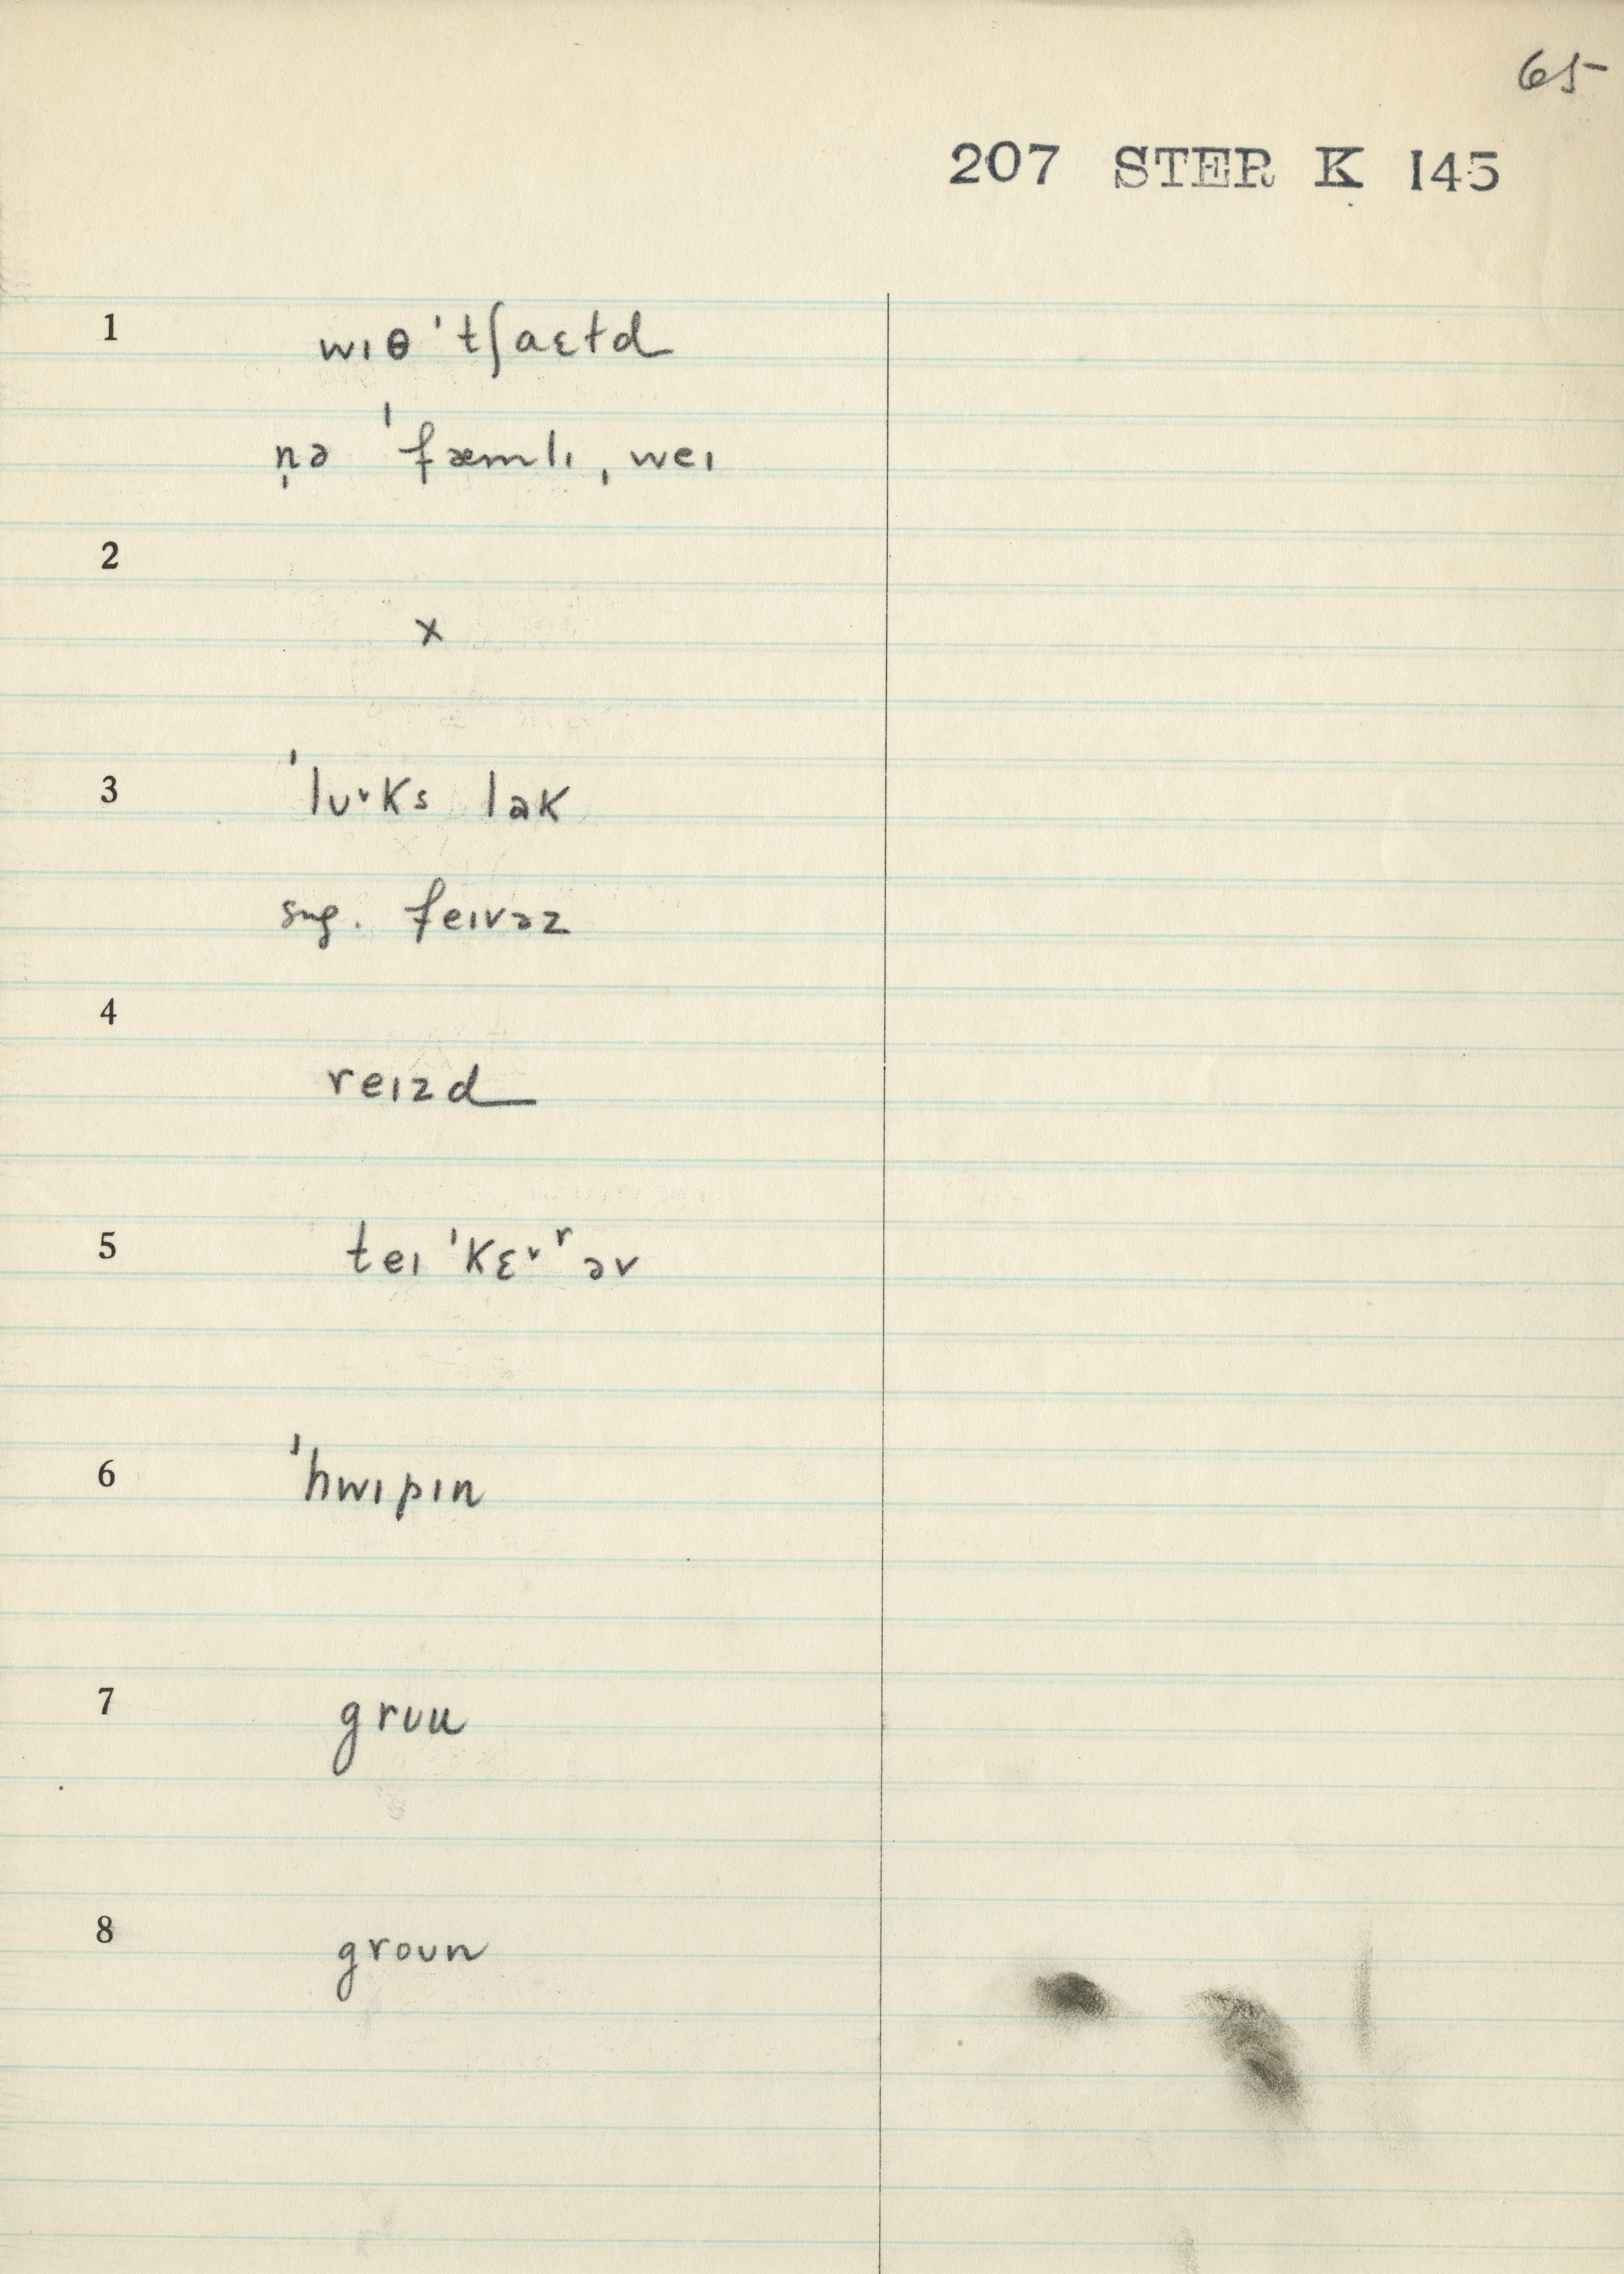 65
207 STER K 145
1 wɪθ ˈtʃaɛɫd
n̩ə ˈfæmlɪ ˌweɪ
2
x
3 ˈlᴜᵛks lək
sug. feɪvəz
4
reɪzd
5 teɪ ˈkɛᵛʳəv
6 ˈhwɪpɪn
7 grᴜu
8 groᴜn